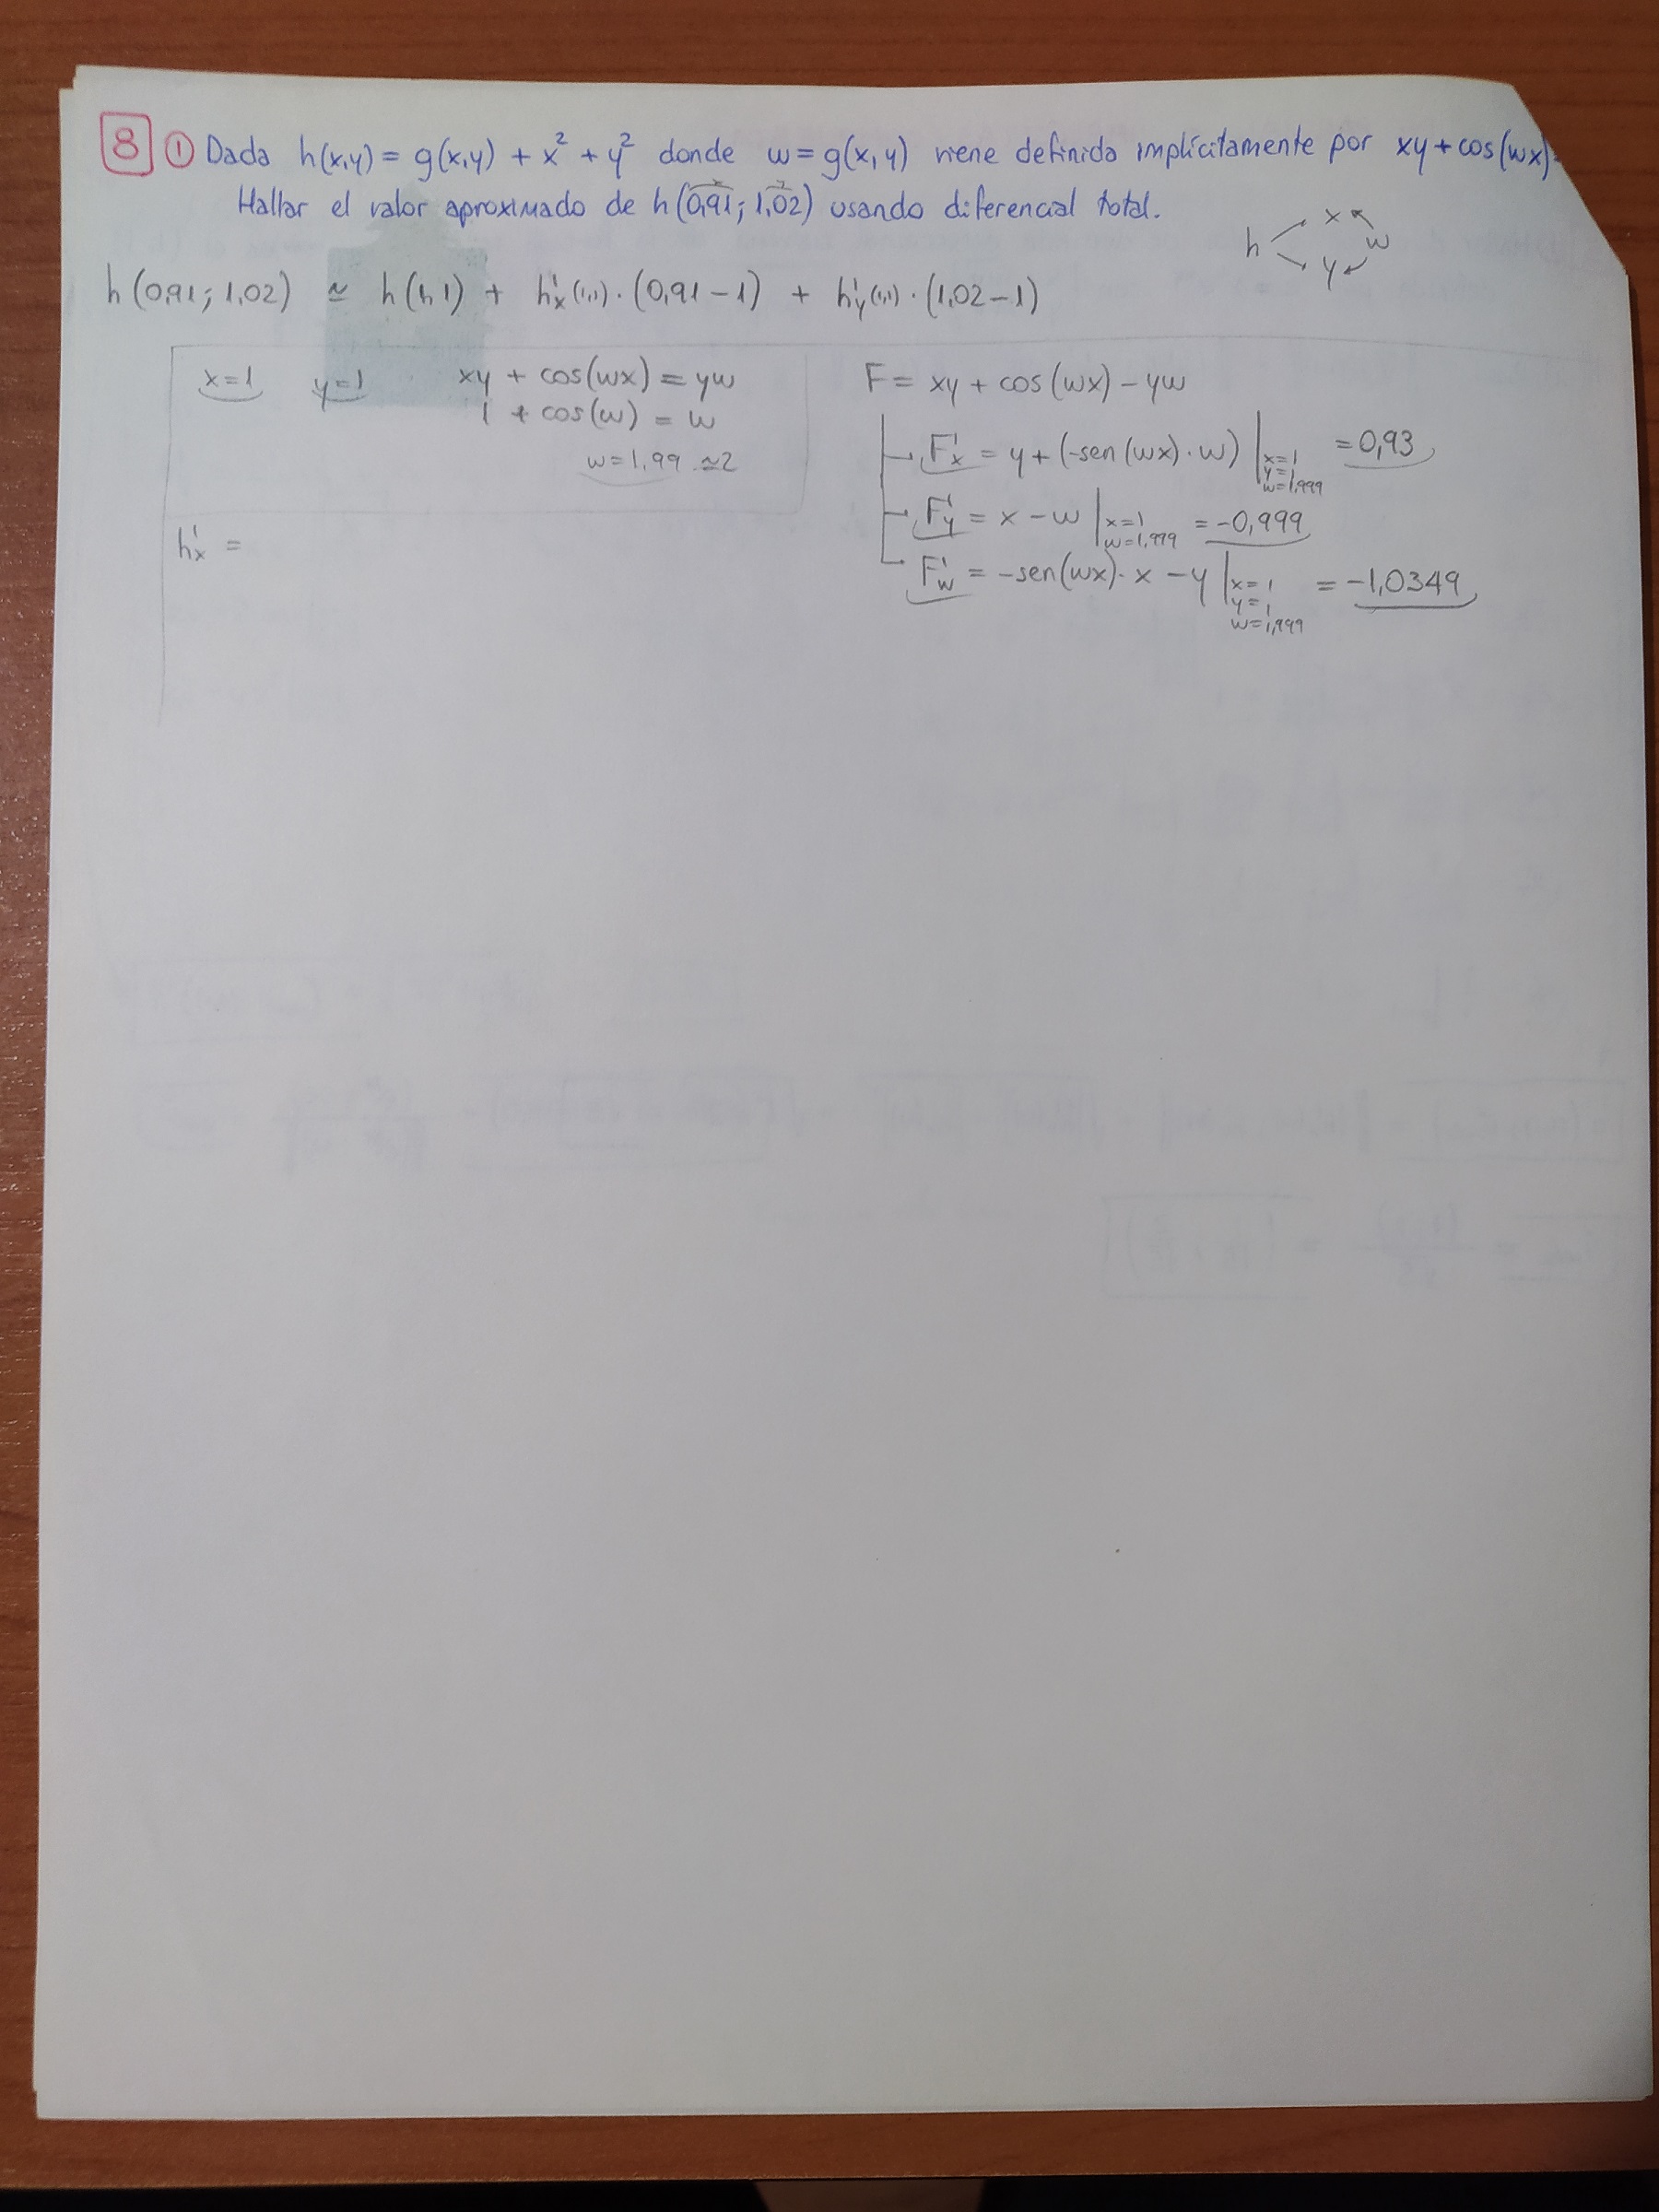 8 ① Dada h(x,y) = g(x,y) + x² + y² donde w = g(x,y) viene definida implícitamente por xy + cos(wx) =
Hallar el valor aproximado de h(0,91; 1,02) usando diferencial total.
h x y w
h(0,91; 1,02) ≃ h(1,1) + h'x(1,1)·(0,91-1) + h'y(1,1)·(1,02-1)
x=1 y=1 xy + cos(wx) = yw
1 + cos(w) = w
w=1,99 ≃2
h'x =
F = xy + cos(wx) - yw
F'x = y + (-sen(wx)·w) | x=1 y=1 w=1,999 = 0,93
F'y = x - w | x=1 w=1,999 = -0,999
F'w = -sen(wx)·x - y | x=1 y=1 w=1,999 = -1,0349